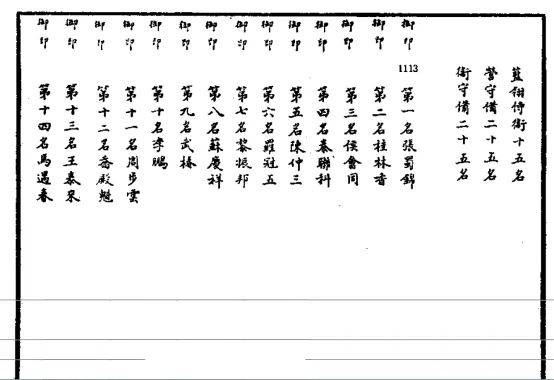 藍翎侍衛十五名
營守備二十五名
衛守備二十五名
1113
御印 第一名張蜀錦
御印 第二名桂林香
御印 第三名侯會同
御印 第四名秦聯科
御印 第五名陳仲三
御印 第六名羅冠五
御印 第七名黎振邦
御印 第八名蘇慶祥
御印 第九名武椿
御印 第十名李鵬
御印 第十一名周步雲
御印 第十二名喬殿魁
御印 第十三名王泰來
御印 第十四名馬遇春